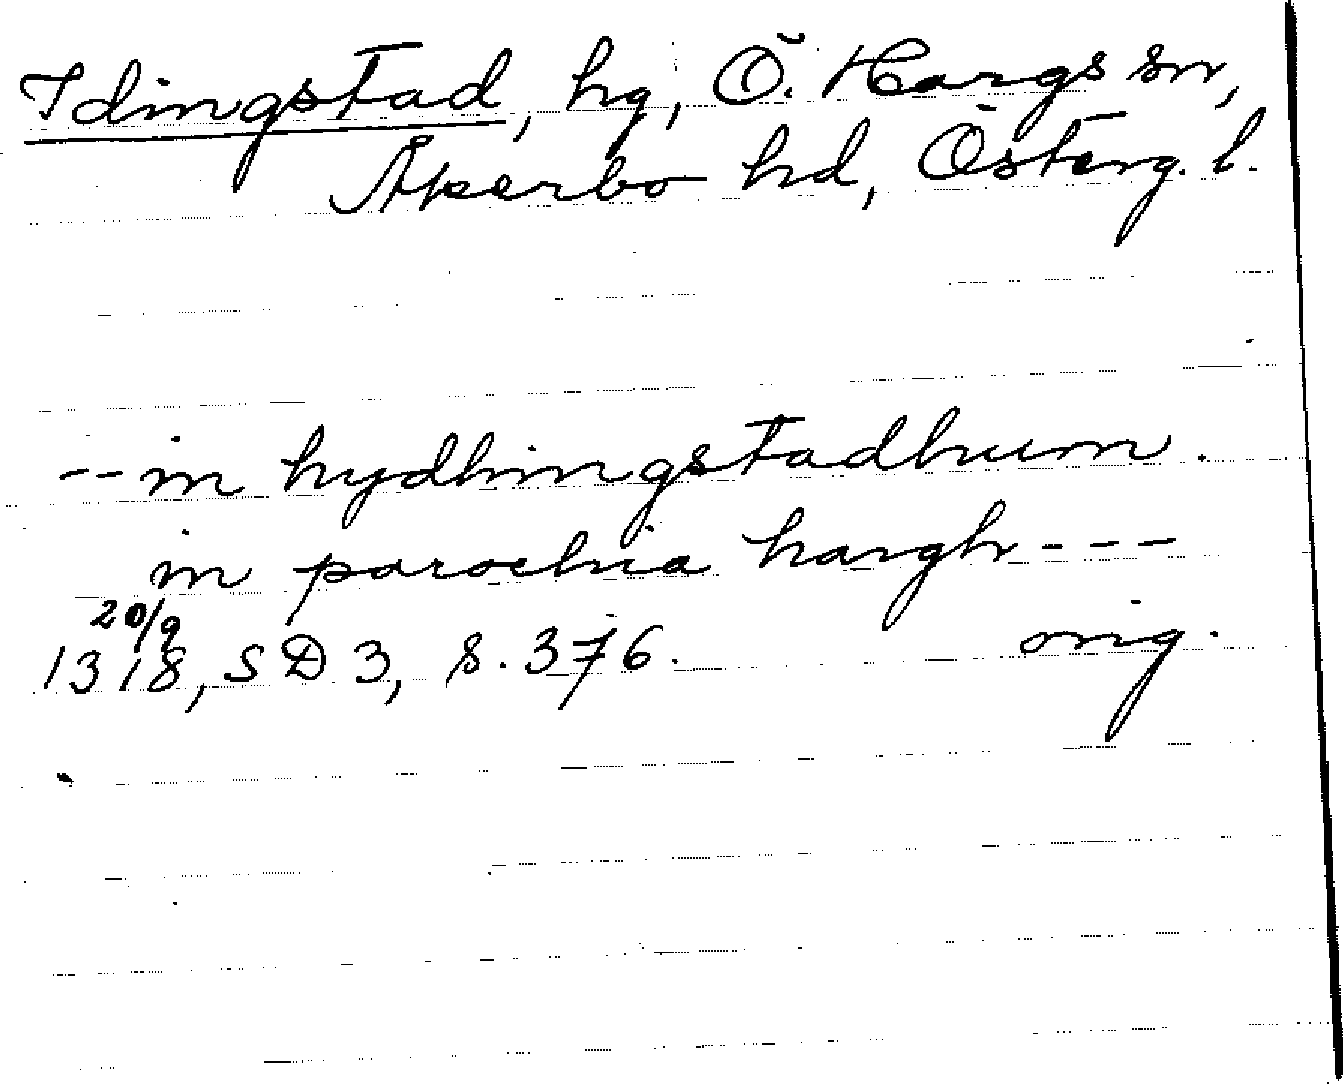 Idingstad, hg, Ö. Hargs sn,
Åkerbo hd, Österg. l.
-- in hydhingstadhum.
in parochia hargh ---
20/9
1318, SD 3, s. 376. orig.